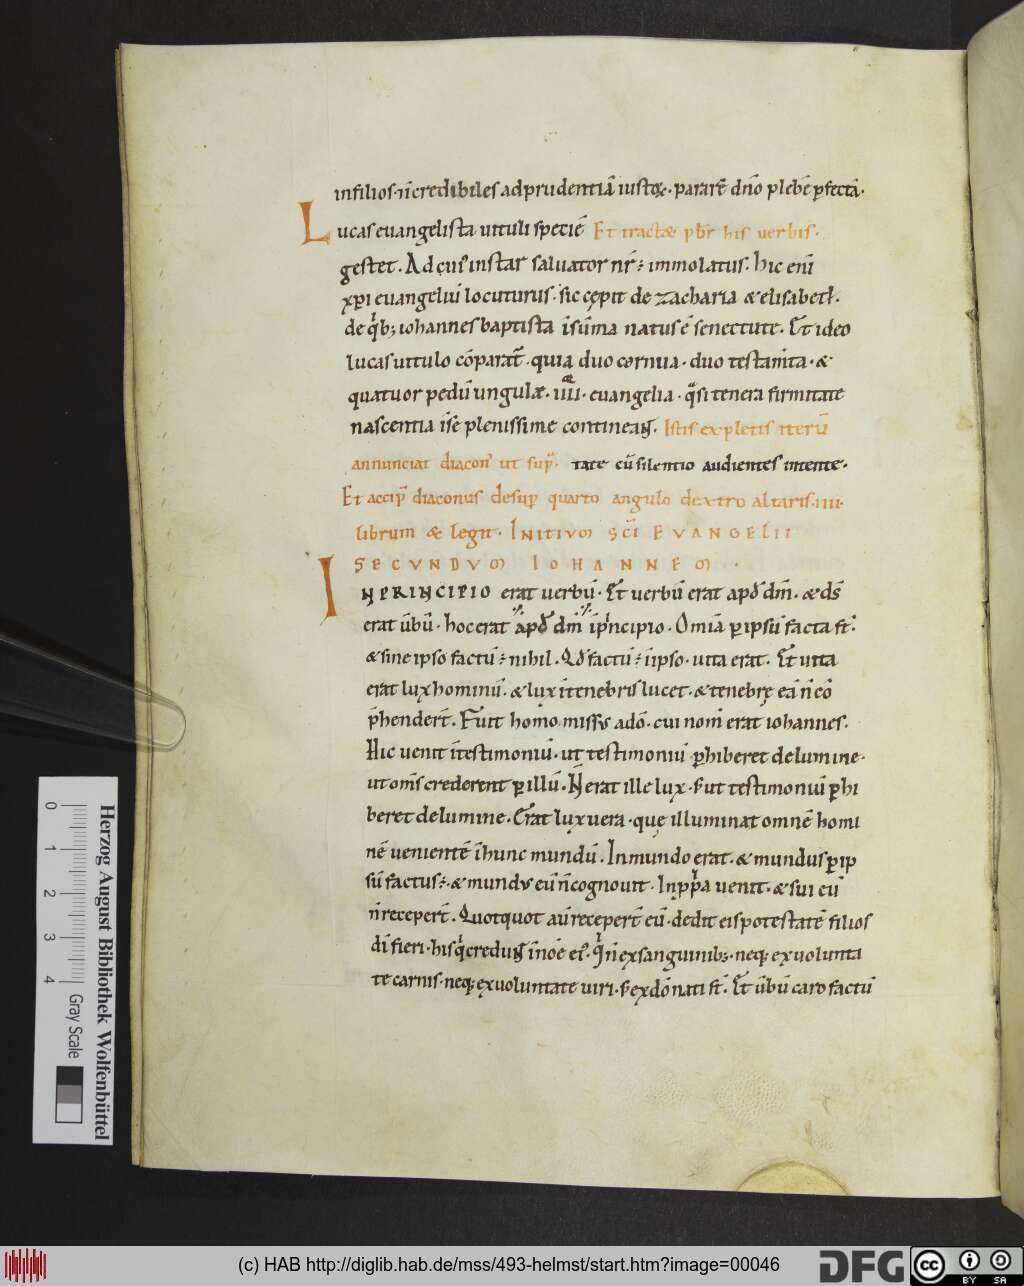 infilios·⁊īcredibiles adprudentiā iustoꝝ· pararē dn̄o plebē ꝑfectā·
Lucas euangelista uituli speciē Et tractæ pb̄r his uerbis·
gestet. Ad cuiꝰ instar saluator nr̄ ÷ immolatus. Hic eni̅
xp̄i euangeliū locuturus. sic cępit de zacharia & elisabeth.
de qͥb; iohannes baptista īsūma natus ē senectute. Et ideo
lucas uitulo cōparat᷑. quia duo cornua. duo testam̄ta. &
quatuor pedū ungulæ. iiii. euangelia. qͣsi tenera firmitate
nascentia īse plenissime contineant᷑. Istis expletis iterū
annunciat diacon̄ ut supͣ. tate cū silentio audientes intente.
Et accip̄ diaconus desuꝑ quarto angulo dextro altaris. iiii.
librum & legit. INITIUM SC̄I EVANGELII
SECUNDUM IOHANNEM.
IN PRINCIPIO erat uerbū. Et uerbū erat apd̄ dm̄. & ds̄
erat ūbū. hoc erat apd̄ dm̄ īpͥncipio. Omīa ꝑ ipsū facta st̄.
& sine ipso factū ÷ nihil. Qd̄ factū ÷ īipso. uita erat. Et uita
erat lux hominū. & lux ītenebris lucet. & tenebrę eā n̄ cō
p̄hendert̄. Fuit homo missus adō. cui nom̄ erat iohannes.
Hic uenit ītestimoniū. ut testimoniū ꝑhiberet delumine.
ut om̄s crederent ꝑ illū. N̄ erat ille lux. s; ut testimoniū ꝑhi
beret delumine. Erat lux uera. que illuminat omnē homi
nē uenientē īhunc mundū. In mundo erat. & mundus ꝑ ip
sū factus ÷. & mundus eū n̄ cognouit. In ppͥa uenit. & sui eū
n̄ receperт̄. Quotquot aū recepert̄ eū. dedit eis potestatē filios
dī fieri. his qͥ credunt īnoē eiꝰ. qͥ n̄ ex sanguinib;. neq; ex uolunta
te carnis. neq; ex uoluntate uiri. s; ex dō nati st̄. Et ūbū caro factū
0 1 2 3 4
Herzog August Bibliothek Wolfenbüttel
Gray Scale
(c) HAB http://diglib.hab.de/mss/493-helmst/start.htm?image=00046
DFG
cc BY SA